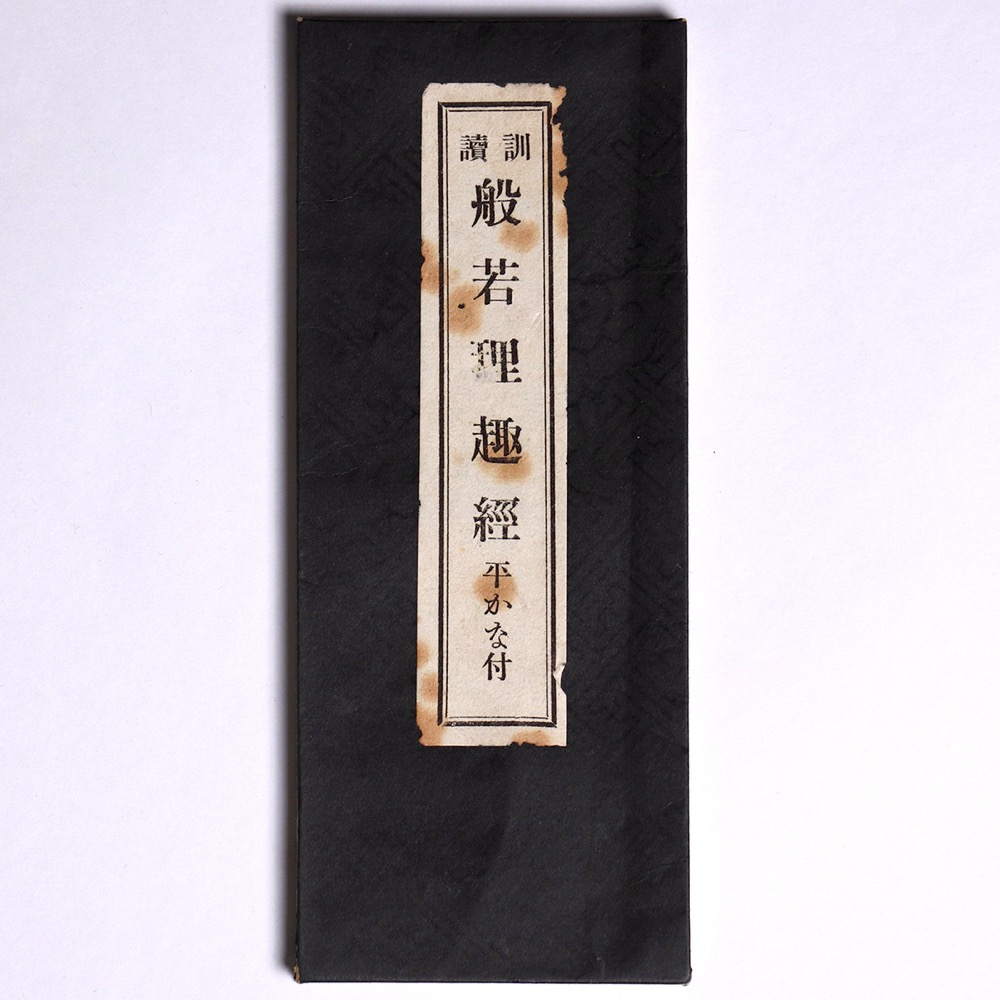 訓讀
般若理趣經 平かな付